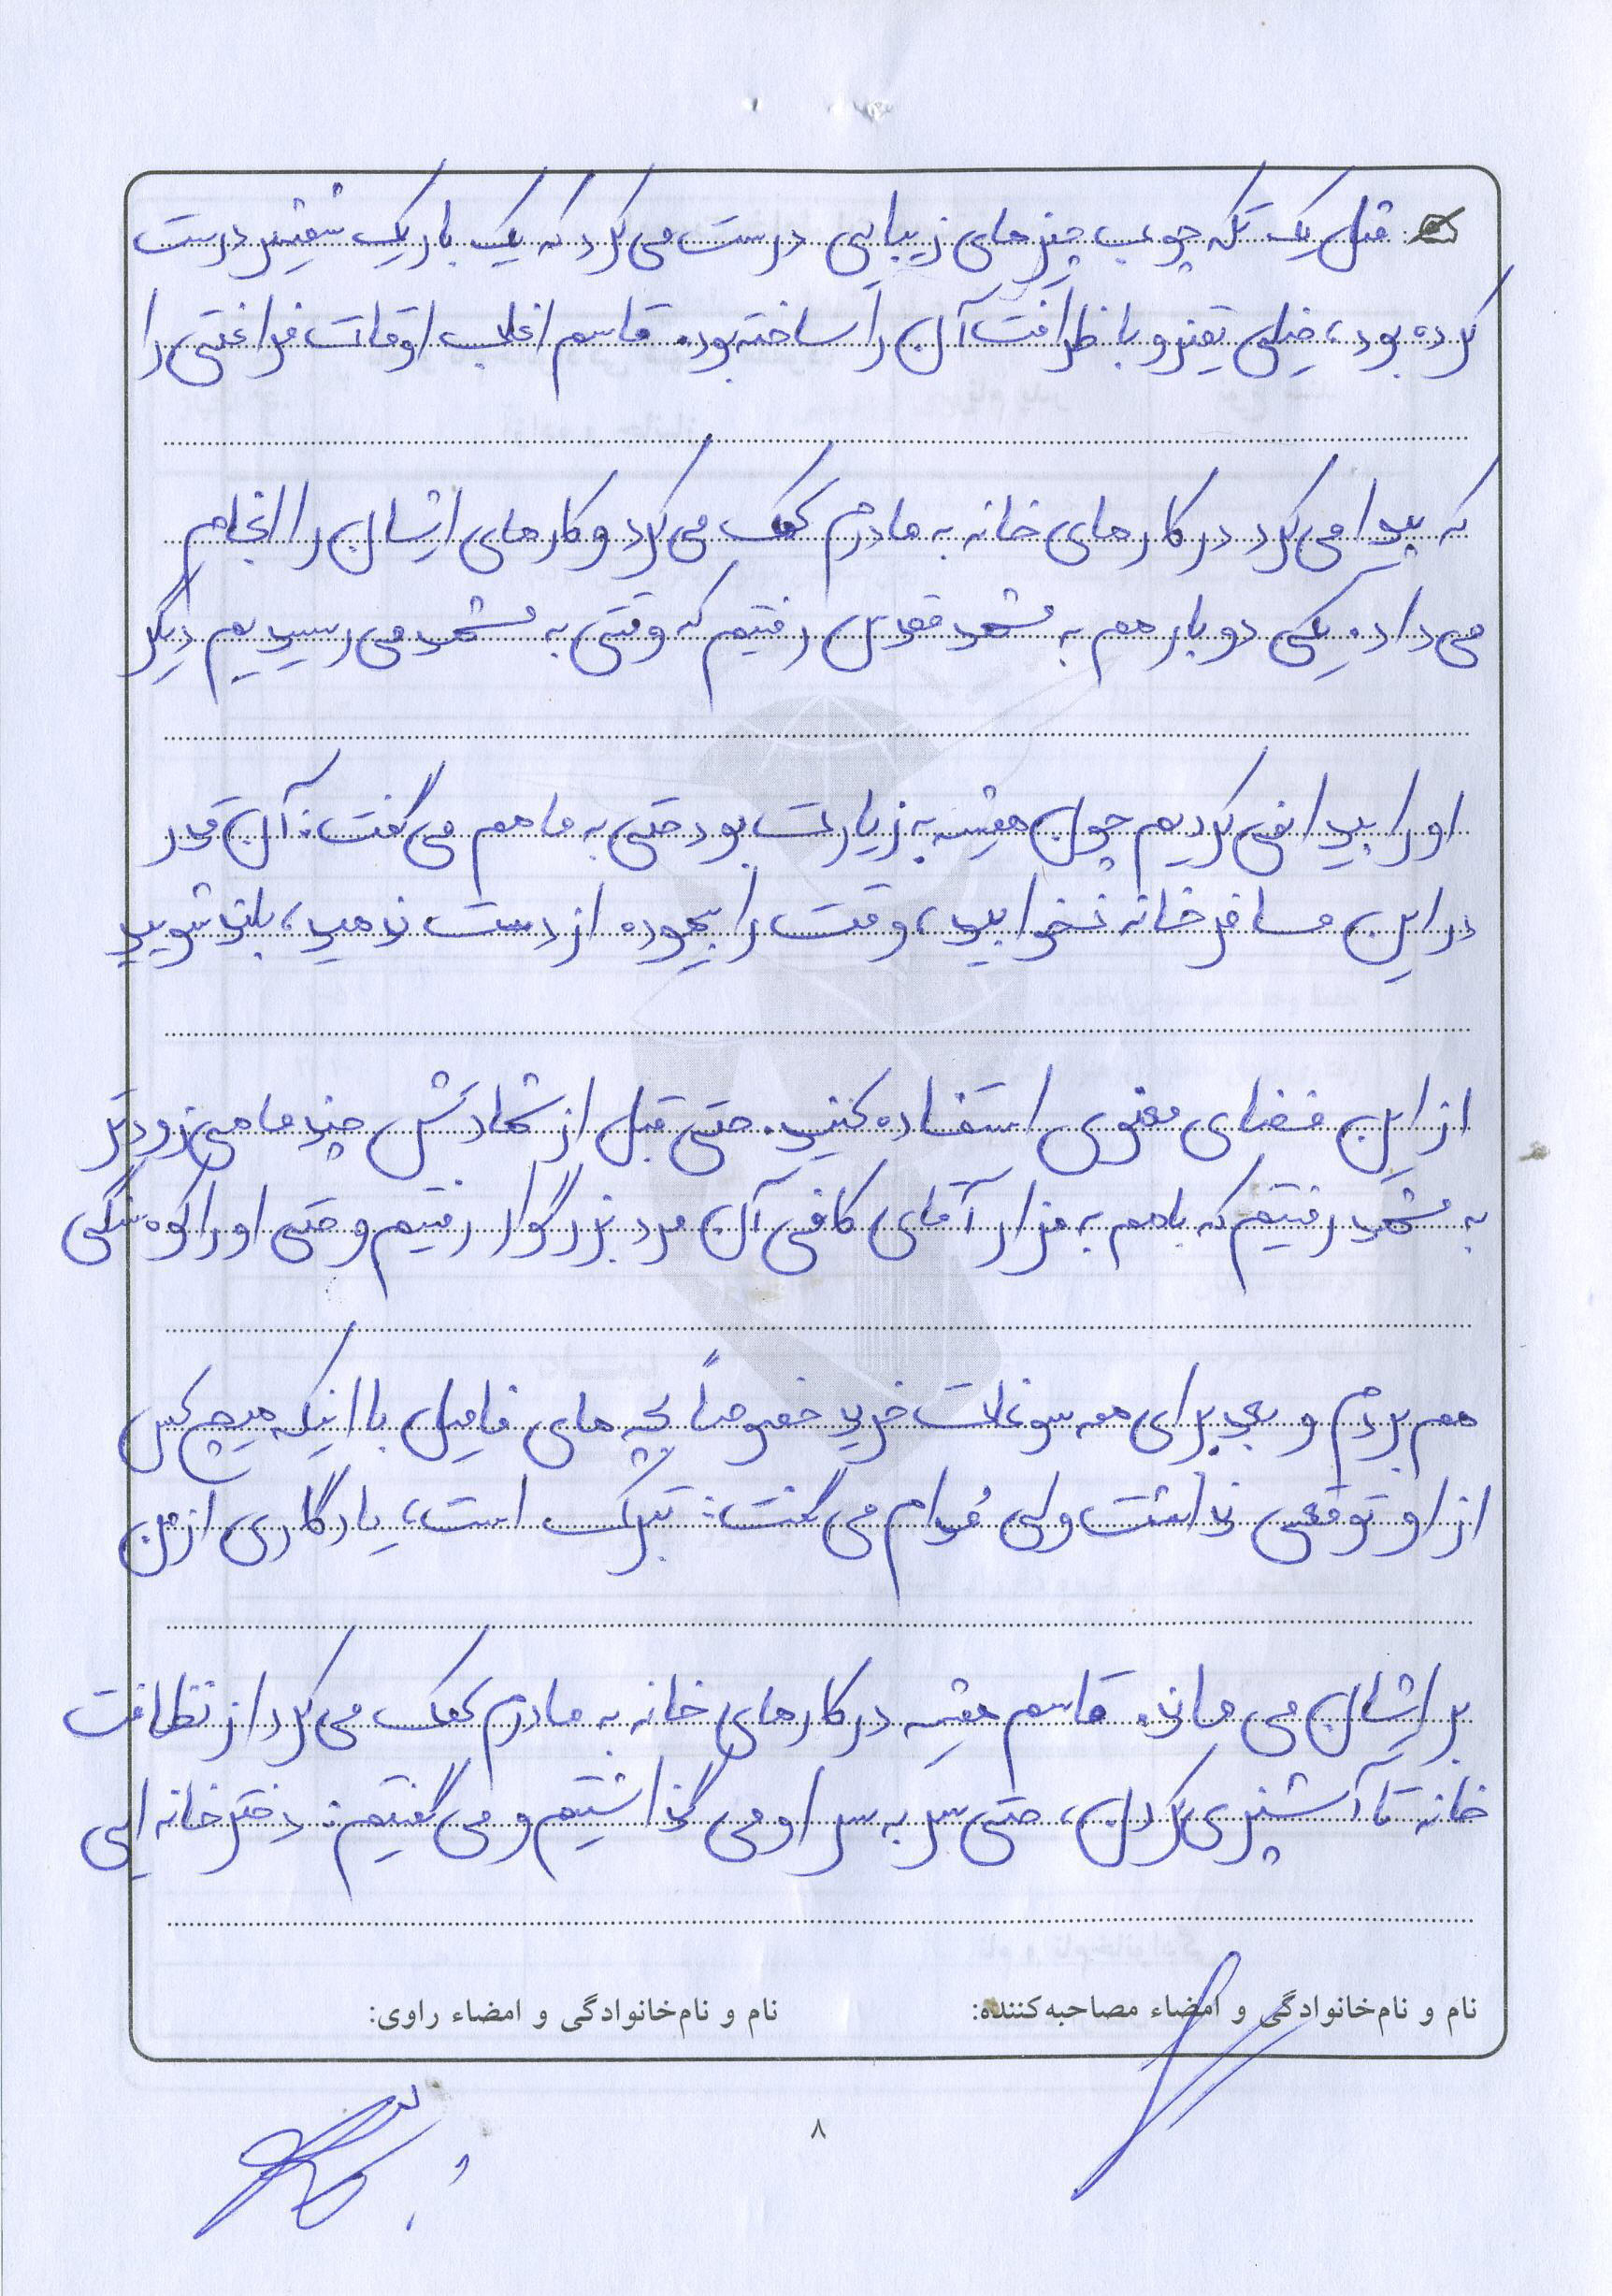 مثل یک تکه چوب چیزهای زیبایی درست می‌کرد که یک بار یک شمشیر درست
کرده بود، خیلی تمیز و با ظرافت آن را ساخته بود. قاسم اغلب اوقات فراغتی را
که پیدا می‌کرد در کارهای خانه به مادرم کمک می‌کرد و کارهای ایشان را انجام
می‌داد. یکی دو بار هم به مشهد مقدس رفتیم که وقتی به مشهد می‌رسیدیم دیگر
او را پیدا نمی‌کردیم چون همیشه به زیارت بود حتی به ما هم می‌گفت: آن قدر
در این مسافرخانه نخوابید، وقت را بیهوده از دست ندهید، بلند شوید
از این فضای معنوی استفاده کنید. حتی قبل از شهادتش چند ماهی زودتر
به مشهد رفتیم که با هم به مزار آقای کافی آن مرد بزرگوار رفتیم و حتی او را کوه سنگی
هم بردم و بعد برای همه سوغات خرید خصوصاً بچه های فامیل با اینکه هیچ کس
از او توقعی نداشت ولی مُدام می گفت: تبرک است، یادگاری از من
بر ایشان می ماند. قاسم همیشه در کارهای خانه به مادرم کمک می‌کرد از نظافت
خانه تا آشپزی کردن، حتی سر به سر او می گذاشتیم و می گفتیم: دختر خانه ایی
نام و نام‌خانوادگی و امضاء مصاحبه‌کننده:
نام و نام‌خانوادگی و امضاء راوی:
۸